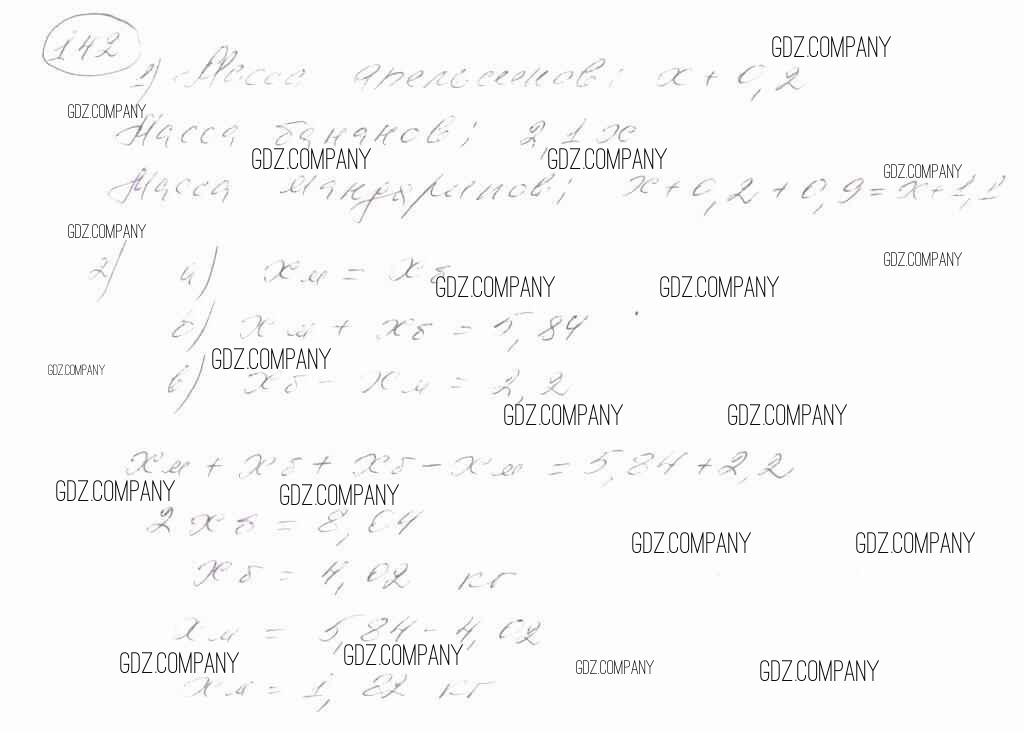 142
GDZ.COMPANY
1) Масса апельсинов: x + 0,2
GDZ.COMPANY
Масса бананов: 2,1x
GDZ.COMPANY GDZ.COMPANY
GDZ.COMPANY
Масса мандаринов: x+0,2+0,9=x+1,1
GDZ.COMPANY
GDZ.COMPANY
2) а) xм = xб
GDZ.COMPANY GDZ.COMPANY
б) xм + xб = 5,84
GDZ.COMPANY
GDZ.COMPANY
в) xб - xм = 2,2
GDZ.COMPANY GDZ.COMPANY
xм + xб + xб - xм = 5,84 + 2,2
GDZ.COMPANY GDZ.COMPANY
2xб = 8,04
GDZ.COMPANY GDZ.COMPANY
xб = 4,02 кг
xм = 5,84 - 4,02
GDZ.COMPANY GDZ.COMPANY GDZ.COMPANY GDZ.COMPANY
xм = 1,82 кг